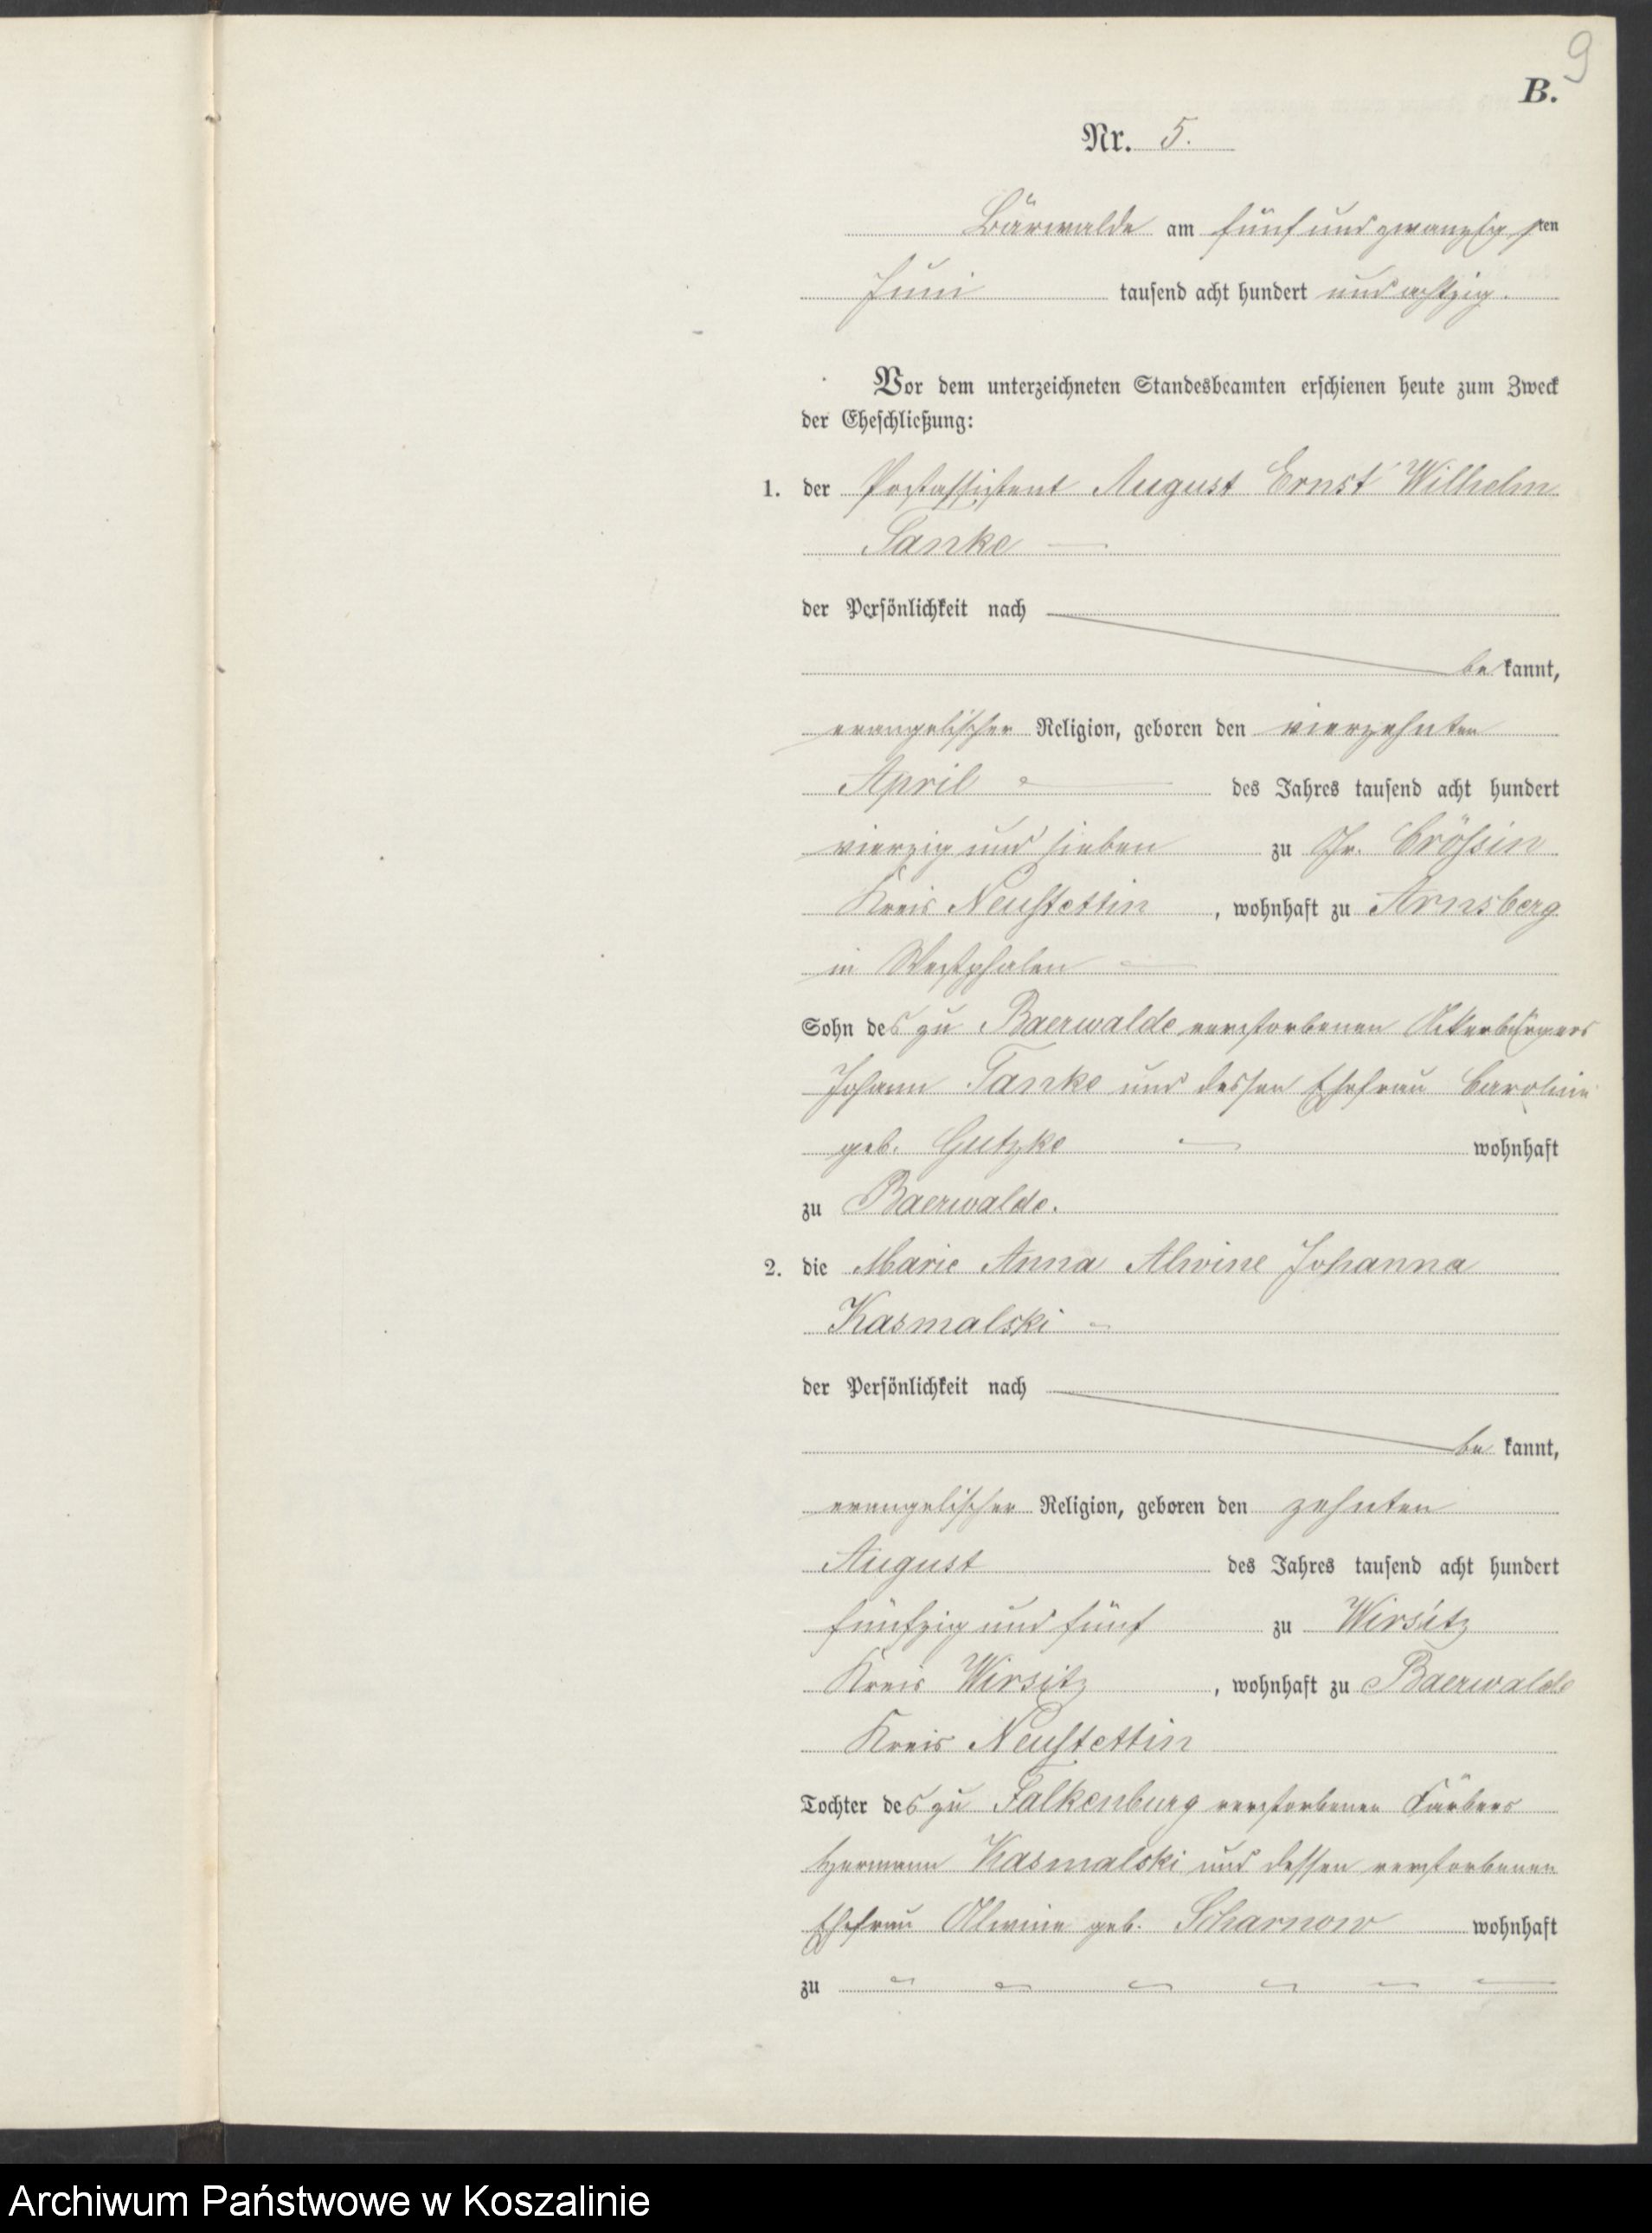 9
B.
Nr. 5.
Bärwalde am fünf und zwanzigsten
Juni tausend acht hundert und achtzig.
Vor dem unterzeichneten Standesbeamten erschienen heute zum Zweck
der Eheschließung:
1. der Postassistent August Ernst Wilhelm
Tanke
der Persönlichkeit nach
bekannt,
evangelischer Religion, geboren den vierzehnten
April des Jahres tausend acht hundert
vierzig und sieben zu Gr. Crössin
Kreis Neustettin, wohnhaft zu Arnsberg
in Westphalen
Sohn des zu Baerwalde verstorbenen Ackerbürgers
Johann Tanke und dessen Ehefrau Caroline
geb. Gutzke wohnhaft
zu Baerwalde.
2. die Marie Anna Alwine Johanna
Kasmalski
der Persönlichkeit nach
bekannt,
evangelischer Religion, geboren den zehnten
August des Jahres tausend acht hundert
fünfzig und fünf zu Wirsitz
Kreis Wirsitz, wohnhaft zu Baerwalde
Kreis Neustettin
Tochter des zu Falkenburg verstorbenen Färbers
Hermann Kasmalski und dessen verstorbenen
Ehefrau Alwine geb. Scharnow wohnhaft
zu
Archiwum Państwowe w Koszalinie